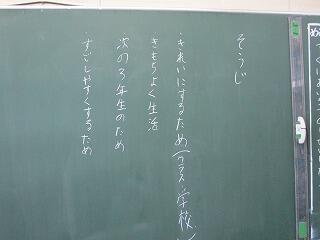 そうじ
・きれいにするため(クラス・学校)
きもちよく生活
次の3年生のため
すごしやすくするため